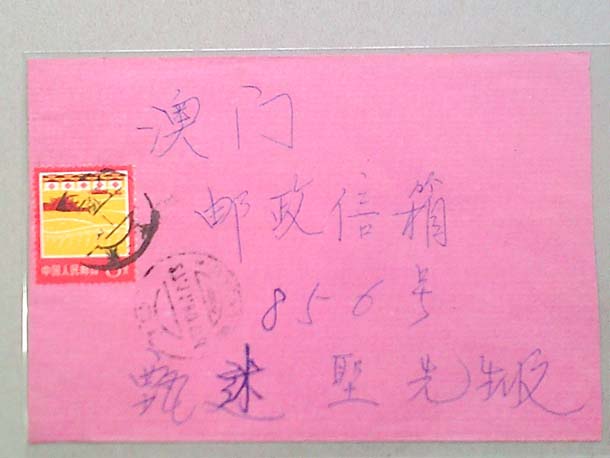 澳门
邮政信箱
856号
甄述圣先生收
中国人民邮政 8分